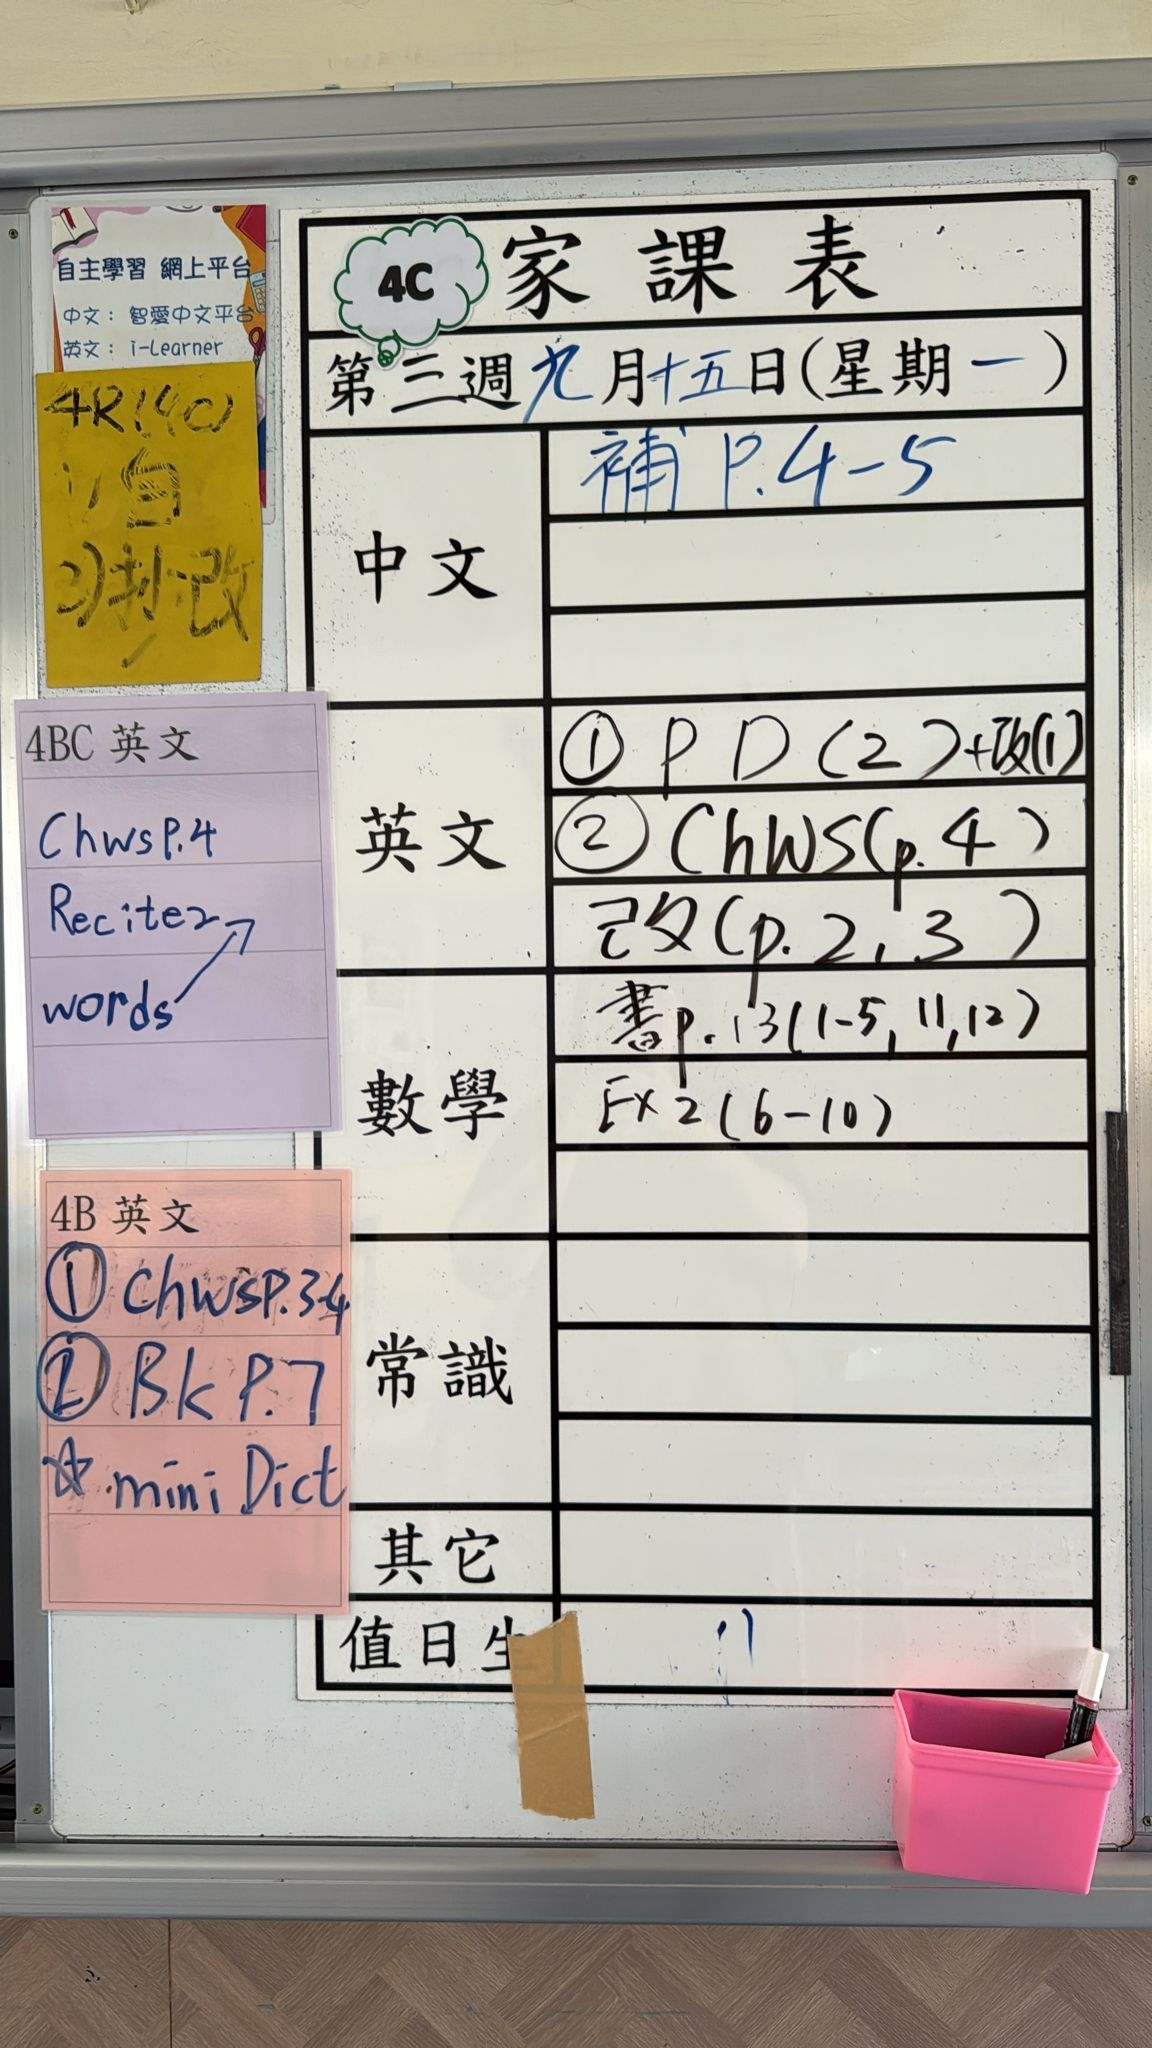 自主學習 網上平台
中文： 智愛中文平台
英文： i-Learner
4R(4C)
1) 自
2) 改
4C 家課表
第三週九月十五日(星期一)
中文
補 P.4-5
英文
① PD(2)+改(1)
② ChWS(p.4)
改(p.2,3)
數學
書p.13(1-5, 11, 12)
Ex 2(6-10)
常識
其它
值日生
4BC 英文
ChwsP.4
Recite2
words
4B 英文
① ChwsP.3-4
② BK P.7
☆ mini Dict